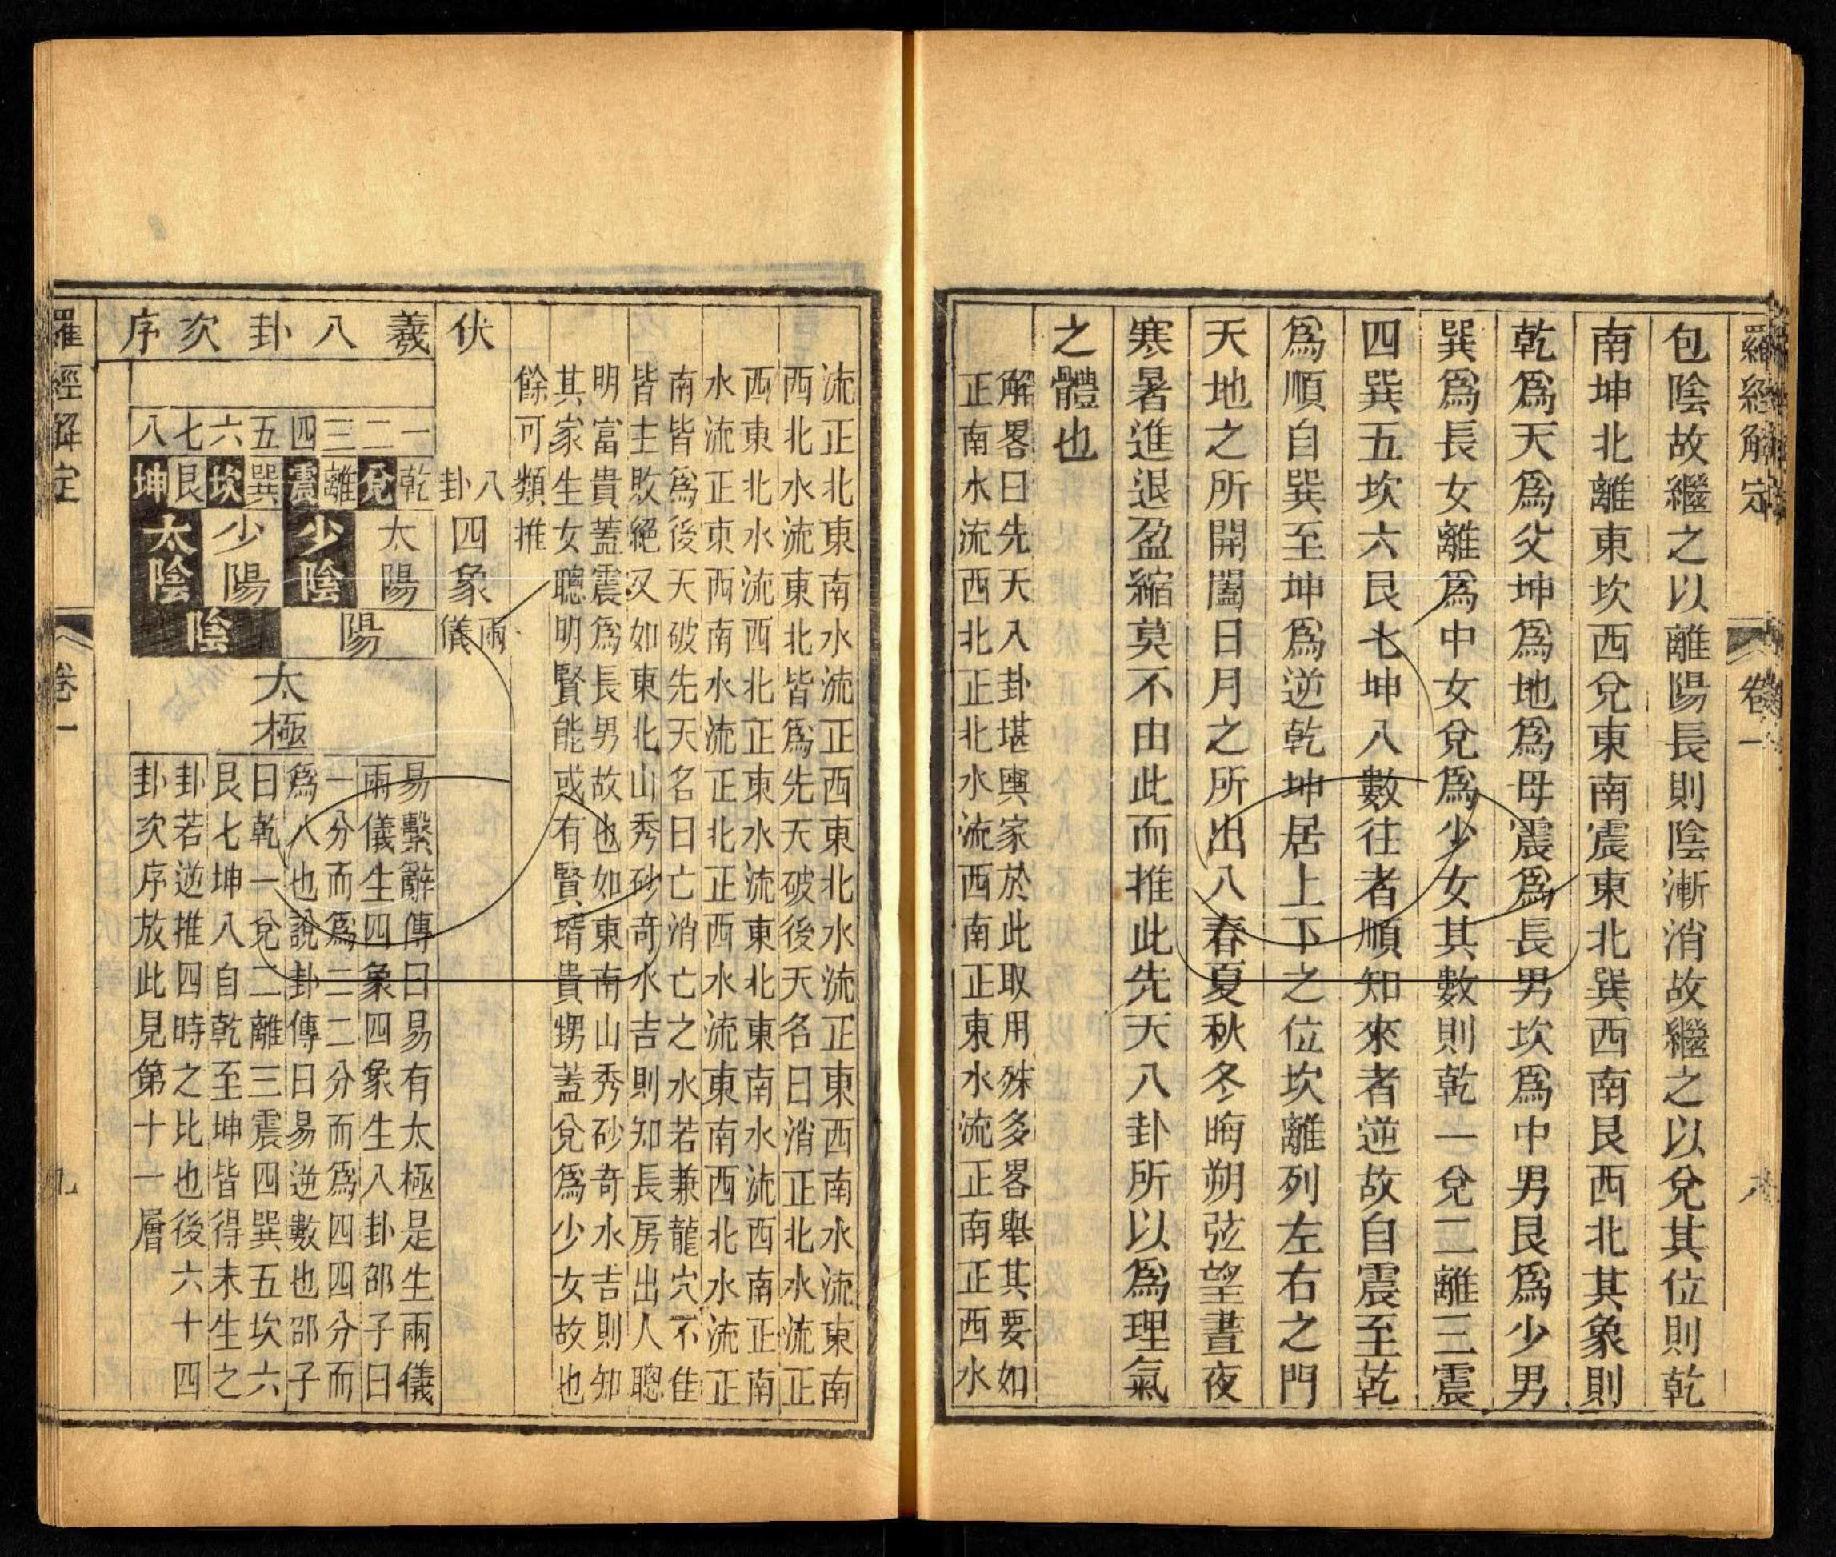 羅經解定　卷一　八
包陰故繼之以離陽長則陰漸消故繼之以兌其位則乾
南坤北離東坎西兌東南震東北巽西南艮西北其象則
乾爲天爲父坤爲地爲母震爲長男坎爲中男艮爲少男
巽爲長女離爲中女兌爲少女其數則乾一兌二離三震
四巽五坎六艮七坤八數往者順知來者逆故自震至乾
爲順自巽至坤爲逆乾坤居上下之位坎離列左右之門
天地之所開闔日月之所出入春夏秋冬晦朔弦望晝夜
寒暑進退盈縮莫不由此而推此先天八卦所以爲理氣
之體也
解畧曰先天八卦堪輿家於此取用殊多畧舉其要如
正南水流西北正北水流西南正東水流正南正西水
流正北東南水流正西東北水流正東西南水流東南
西北水流東北皆爲先天破後天名曰消正北水流正
西東北水流西北正東水流東北東南水流西南正南
水流正東西南水流正北正西水流東南西北水流正
南皆爲後天破先天名曰亡消亡之水若兼龍穴不佳
皆主敗絕又如東北山秀砂奇水吉則知長房出人聰
明富貴蓋震爲長男故也如東南山秀砂奇水吉則知
其家生女聰明賢能或有賢壻貴甥蓋兌爲少女故也
餘可類推
伏羲八卦次序
八卦　四象　兩儀
一二三四五六七八
乾兌離震巽坎艮坤
太陽　少陰　少陽　太陰
陽　陰
太極
易繫辭傳曰易有太極是生兩儀
兩儀生四象四象生八卦邵子曰
一分而爲二二分而爲四四分而
爲八也說卦傳曰易逆數也邵子
曰乾一兌二離三震四巽五坎六
艮七坤八自乾至坤皆得未生之
卦若逆推四時之比也後六十四
卦次序放此見第十一層
羅經解定　卷一　九